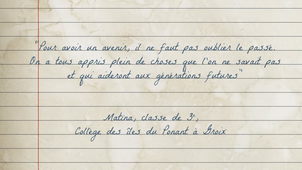 "Pour avoir un avenir, il ne faut pas oublier le passé.
On a tous appris plein de choses que l'on ne savait pas
et qui aideront aux générations futures"
Matina, classe de 3e,
Collège des îles du Ponant à Groix